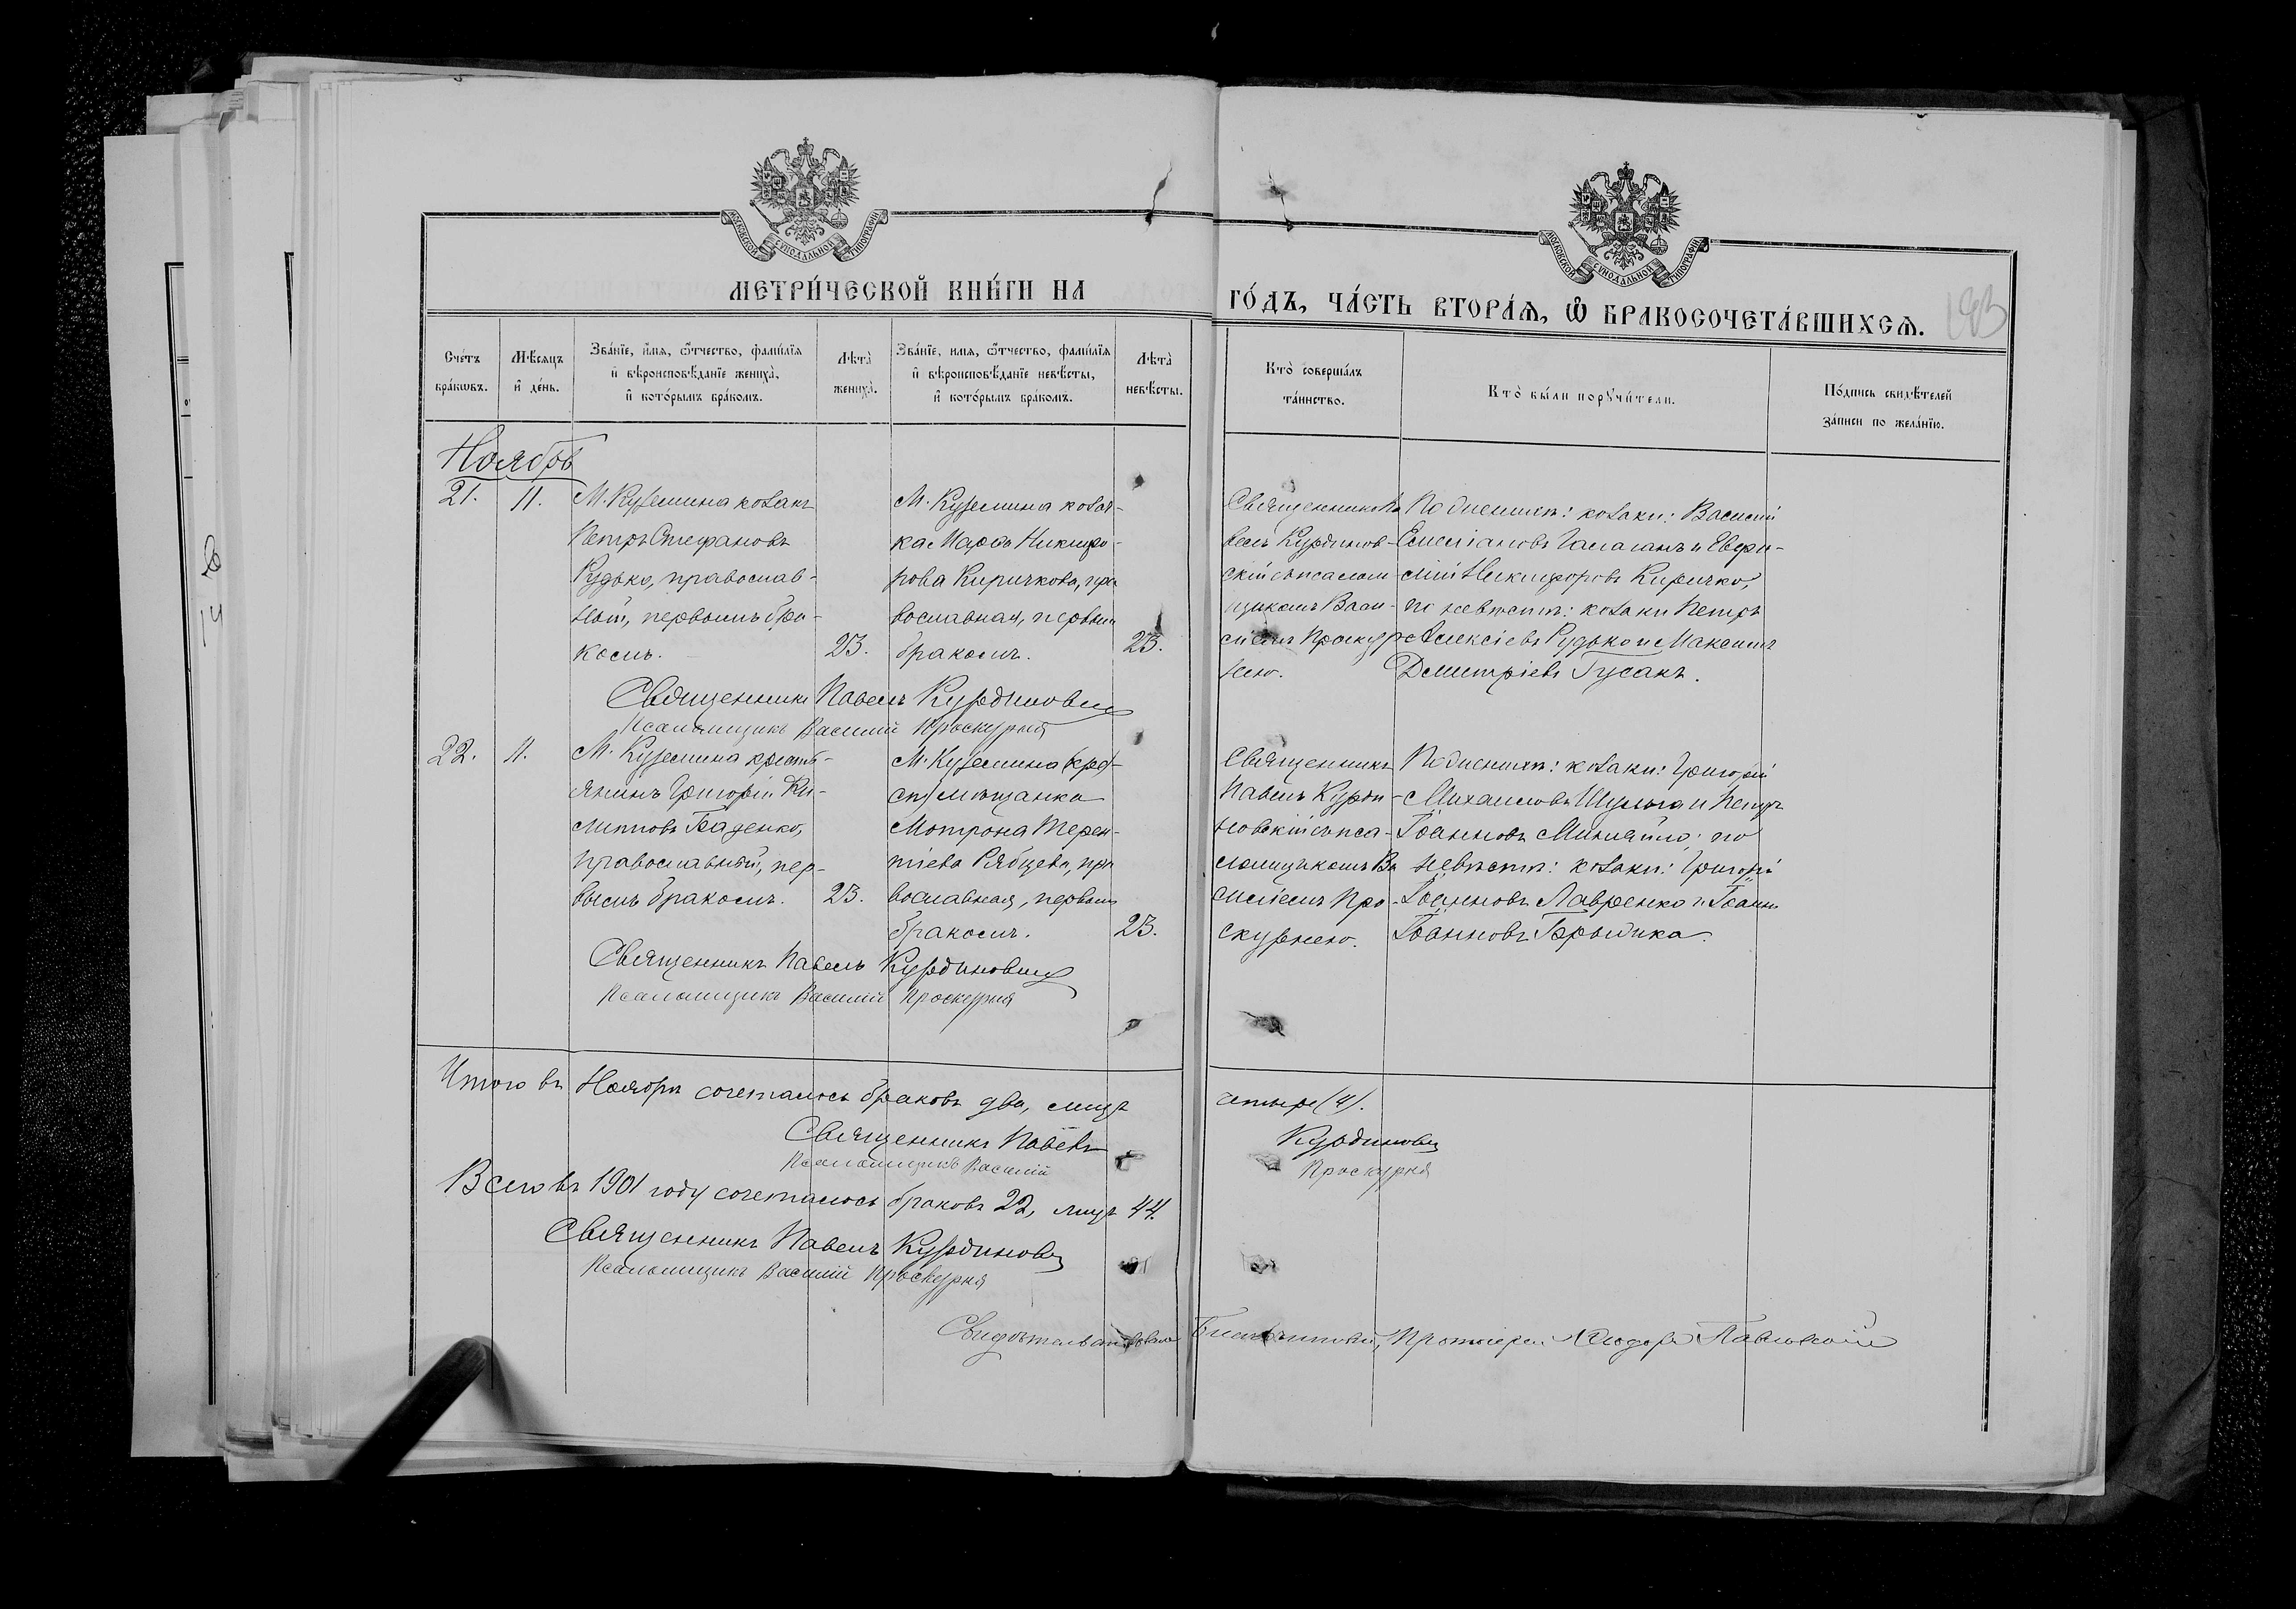 МОСКОВСКОЙ СѴНОДАЛЬНОЙ ТИПОГРАФІИ
МОСКОВСКОЙ СѴНОДАЛЬНОЙ ТИПОГРАФІИ
МЕТРИ́ЧЕСКОЙ КНИ́ГИ НА
ГО́ДЪ, ЧА́СТЬ ВТОРА́Я, Ѽ БРАКОСОЧЕТА́ВШИХСЯ.
Сче́тъ
бра́кѡвъ.
Мѣ́сяцъ
и҆ де́нь.
Зва́нїе, и҆́мя, ѻ҆́тчество, фами́лїя
и҆ вѣроисповѣ́данїе жениха̀,
и҆ кото́рымъ бра́комъ.
Лѣ́та
жениха̀.
Зва́нїе, и҆мя, ѻ҆́тчество, фами́лїя
и҆ вѣроисповѣ́данїе невѣ́сты,
и҆ кото́рымъ бра́комъ.
Лѣ́та
невѣ́сты.
Кто̀ соверша́лъ
та́инство.
Кто̀ бы́ли порꙋчи́тели.
По́дпись свидѣ́телей
за́писи по жела́нїю.
Ноябрь
21.
11.
М. Куземина козакъ
Петръ Стефановъ
Рудько, православ-
ный, первымъ бра-
комъ.
23.
М. Куземина козач-
ка Марѳа Никифо-
рова Киричкова, пра
вославная, первым
бракомъ.
23.
Священникъ Па
велъ Курдинов-
скій съ псалом-
щикомъ Васи-
ліемъ Проскур
нею.
По женихѣ: козаки: Василій
Емеліановъ Галаганъ и Евфи-
мій Никифоровъ Киричко;
по невѣстѣ: козаки Петръ
Алексіевъ Рудько и Максимъ
Димитріевъ Гусакъ.
Священникъ Павелъ Курдиновскій
Псаломщикъ Василій Проскурня
22.
11.
М. Куземина кресть-
янинъ Григорій Фи-
липповъ Баденко,
православный, пер-
вымъ бракомъ.
23.
М. Куземина (кре-
ст) мѣщанка
Мотрона Терен-
тіева Рябцева, пра
вославная, первым
бракомъ.
23.
Священникъ
Павелъ Курди-
новскій съ пса-
ломщикомъ Ва
силіемъ Про-
скурнею.
По женихѣ: козаки: Григорій
Михаиловъ Шульга и Петръ
Іоанновъ Миняйло; по
невѣстѣ: козаки: Григорій
Іоанновъ Лавренко и Іоаннъ
Іоанновъ Брыдика.
Священникъ Павелъ Курдиновскій
Псаломщикъ Василій Проскурня
Итого въ Ноябрѣ сочеталось браковъ два, лицъ
четыре (4).
Священникъ Павелъ
Курдиновскій
Псаломщикъ Василій
Проскурня
Всего въ 1901 году сочеталось браковъ 22, лицъ 44.
Священникъ Павелъ Курдиновскій
Псаломщикъ Василій Проскурня
Свидѣтельствовалъ Благочинный, Протоіерей Ѳеодоръ Павловскій